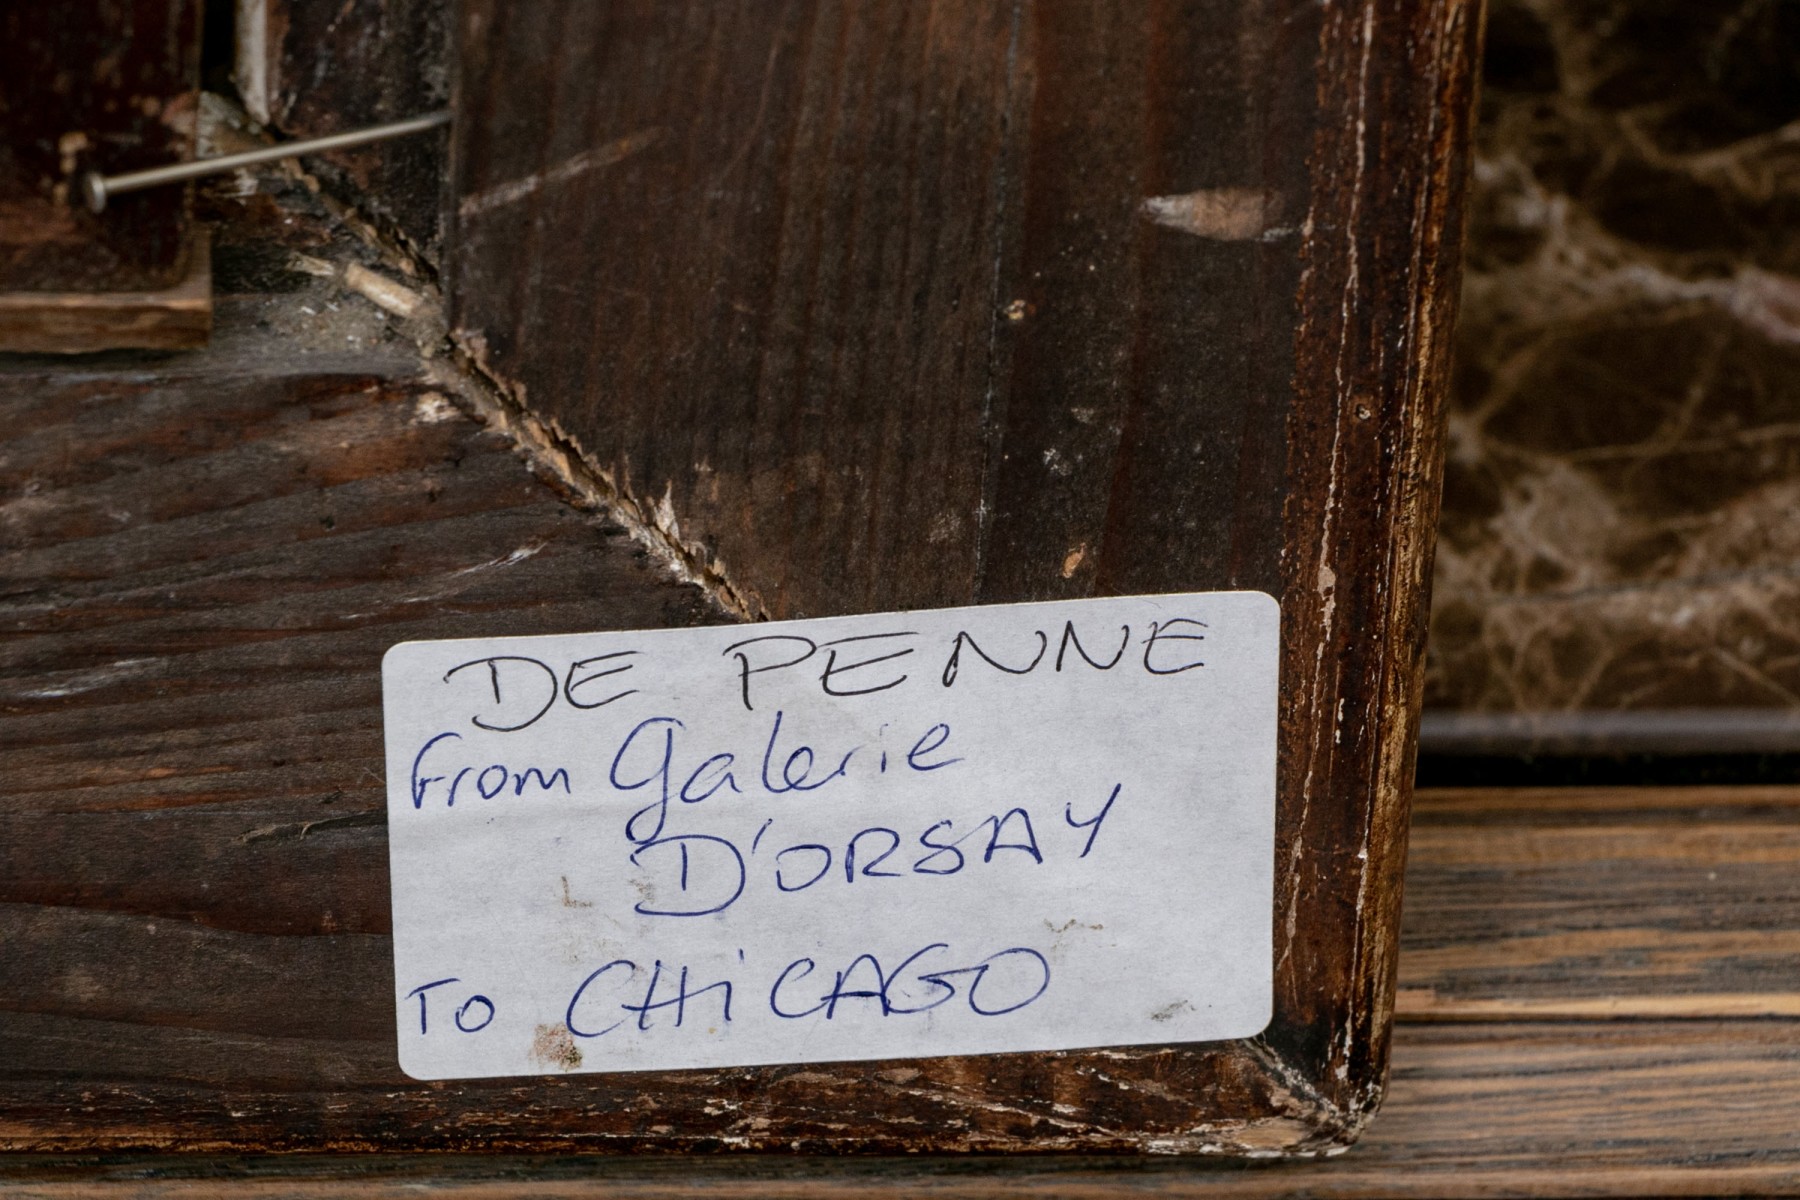 DE PENNE
From Galerie
D'ORSAY
To CHiCAGO